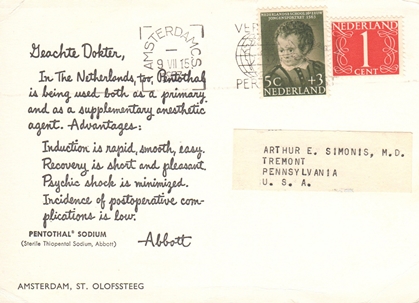 Geachte Dokter,
In The Netherlands, too, Pentothal
is being used both as a primary
and as a supplementary anesthetic
agent. Advantages:
Induction is rapid, smooth, easy.
Recovery is short and pleasant.
Psychic shock is minimized.
Incidence of postoperative com-
plications is low.
PENTOTHAL® SODIUM
(Sterile Thiopental Sodium, Abbott)
Abbott
AMSTERDAM, ST. OLOFSSTEEG
AMSTERDAM C.S.
9 VII 15
PER
NEDERLAND
5c +3
NEDERLAND
1
CENT
ARTHUR E. SIMONIS, M.D.
TREMONT
PENNSYLVANIA
U. S. A.